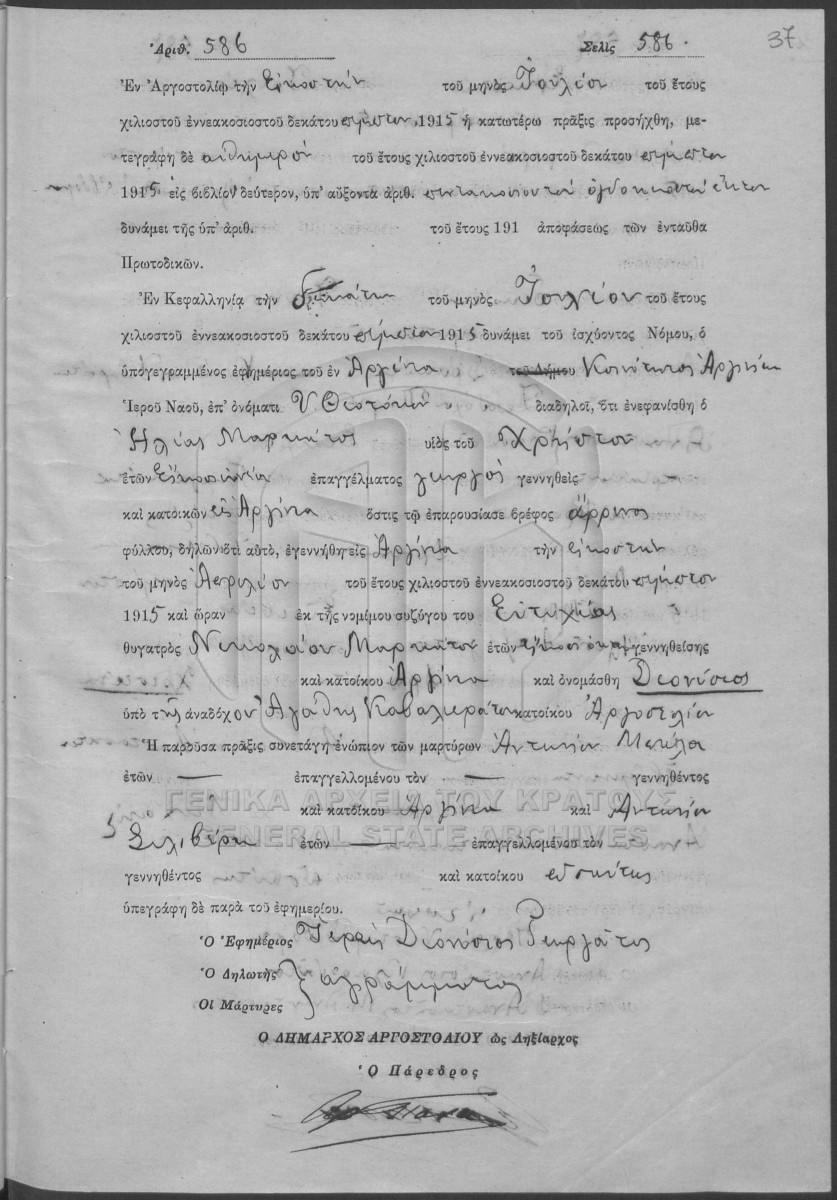 37
Ἀριθ. 586 Σελὶς 586.
Ἐν Ἀργοστολίῳ τὴν Εἰκοστὴν τοῦ μηνὸς Ἰουλίου τοῦ ἔτους
χιλιοστοῦ ἐννεακοσιοστοῦ δεκάτου πέμπτου 1915 ἡ κατωτέρω πρᾶξις προσήχθη, με-
τεγράφη δὲ αὐθημερὸν τοῦ ἔτους χιλιοστοῦ ἐννεακοσιοστοῦ δεκάτου πέμπτου
1915 εἰς βιβλίον δεύτερον, ὑπ' αὔξοντα ἀριθ. πεντακοσιοστὸν ὀγδοηκοστὸν ἕκτον
δυνάμει τῆς ὑπ' ἀριθ. τοῦ ἔτους 191 ἀποφάσεως τῶν ἐνταῦθα
Πρωτοδικῶν.
Ἐν Κεφαλληνίᾳ τὴν δεκάτην τοῦ μηνὸς Ἰουλίου τοῦ ἔτους
χιλιοστοῦ ἐννεακοσιοστοῦ δεκάτου πέμπτου 1915 δυνάμει τοῦ ἰσχύοντος Νόμου, ὁ
ὑπογεγραμμένος ἐφημέριος τοῦ ἐν Ἀργίνια τοῦ Δήμου Κοινότητος Ἀργινίων
Ἱεροῦ Ναοῦ, ἐπ' ὀνόματι Υ Θεοτόκου διαδηλοῖ, ὅτι ἐνεφανίσθη ὁ
Ἠλίας Μαρκάτος υἱὸς τοῦ Χρήστου
ἐτῶν ἐπαγγέλματος γεωργὸς γεννηθεὶς
καὶ κατοικῶν εἰς Ἀργίνια ὅστις τῷ ἐπαρουσίασε βρέφος ἄρρενος
φύλλου, δηλῶν ὅτι αὐτό, ἐγεννήθη εἰς Ἀργίνια τὴν εἰκοστὴν
τοῦ μηνὸς Ἀπριλίου τοῦ ἔτους χιλιοστοῦ ἐννεακοσιοστοῦ δεκάτου πέμπτου
1915 καὶ ὥραν ἐκ τῆς νομίμου συζύγου του Εὐτυχίας
θυγατρὸς Νικολάου Μαρκάτου ἐτῶν εἴκοσι ὀκτὼ γεννηθείσης
καὶ κατοίκου Ἀργίνια καὶ ὀνομάσθη Διονύσιος
ὑπὸ τῆς ἀναδόχου Ἀγάθης Καβαλιεράτου κατοίκου Ἀργοστολίου
Ἡ παροῦσα πρᾶξις συνετάγη ἐνώπιον τῶν μαρτύρων Ἀντωνίου
ἐτῶν — ἐπαγγελλομένου τὸν — γεννηθέντος
καὶ κατοίκου Ἀργίνια καὶ Ἀντωνίου
Σιλιβέρη ἐτῶν — ἐπαγγελλομένου τὸν
γεννηθέντος καὶ κατοίκου
ὑπεγράφη δὲ παρὰ τοῦ ἐφημερίου.
Ὁ Ἐφημέριος Ἱερεὺς Διονύσιος Γεωργάτος
Ὁ Δηλωτὴς
ἀγράμματος
Οἱ Μάρτυρες
Ο ΔΗΜΑΡΧΟΣ ΑΡΓΟΣΤΟΛΙΟΥ ὡς Ληξίαρχος
Ὁ Πάρεδρος
ΓΕΝΙΚΑ ΑΡΧΕΙΑ ΤΟΥ ΚΡΑΤΟΥΣ
GENERAL STATE ARCHIVES